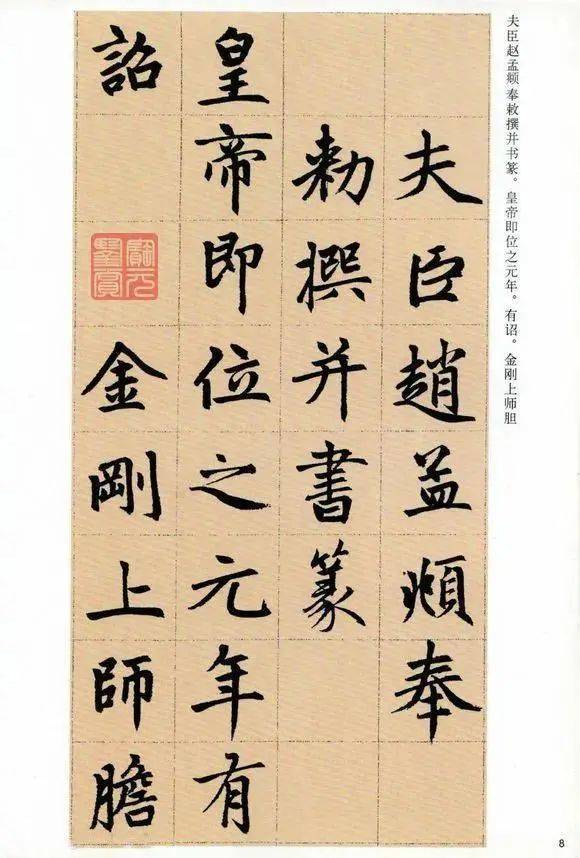 夫臣赵孟頫奉敕撰并书篆。皇帝即位之元年。有诏。金刚上师胆
夫臣趙孟頫奉
勑撰并書篆
皇帝即位之元年有
詔 金剛上師膽
8